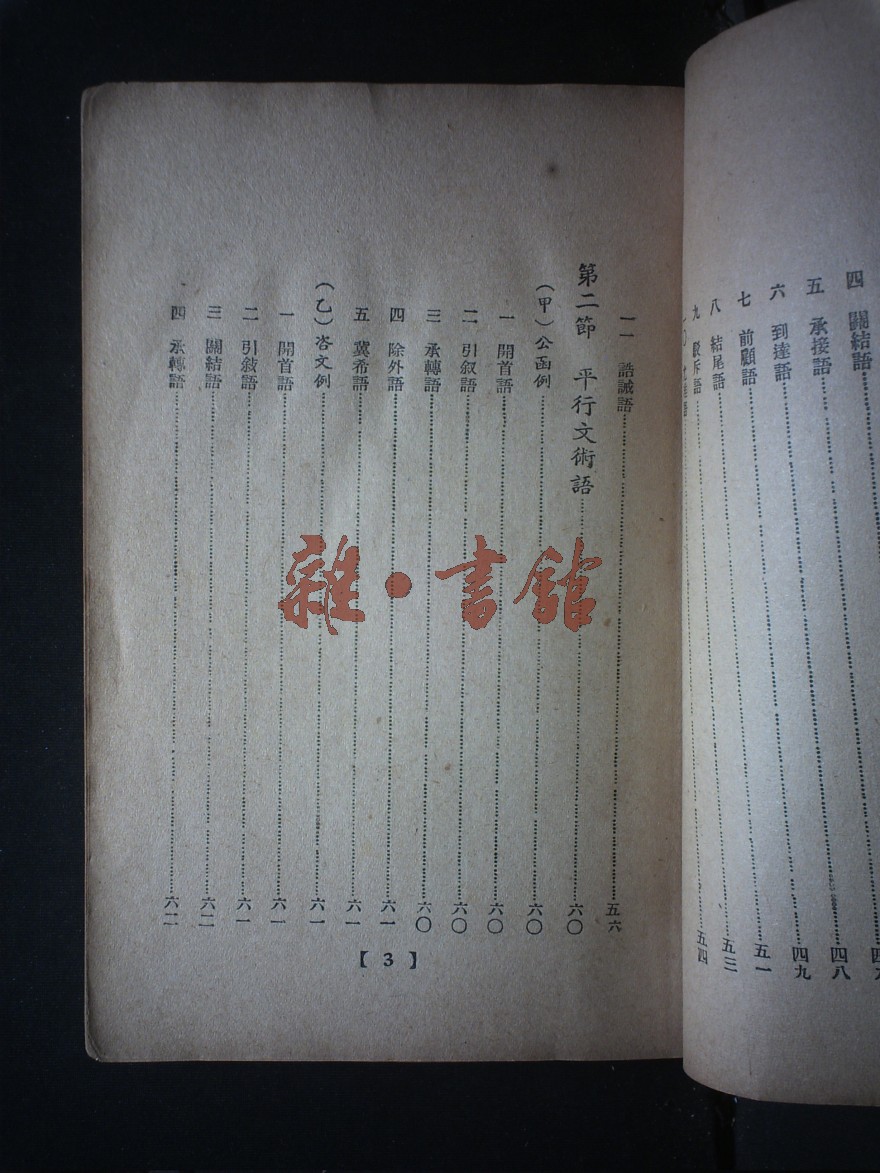 四 關結語……四
五 承接語……四八
六 到達語……四九
七 前顧語……五一
八 結尾語……五三
九 駁斥語……五四
一一 誥誡語……五六
第二節 平行文術語……六〇
(甲)公函例……六〇
一 開首語……六〇
二 引叙語……六〇
三 承轉語……六〇
四 除外語……六一
五 冀希語……六一
(乙)咨文例……六一
一 開首語……六一
二 引敍語……六一
三 關結語……六二
四 承轉語……六二
【3】
雜·書館